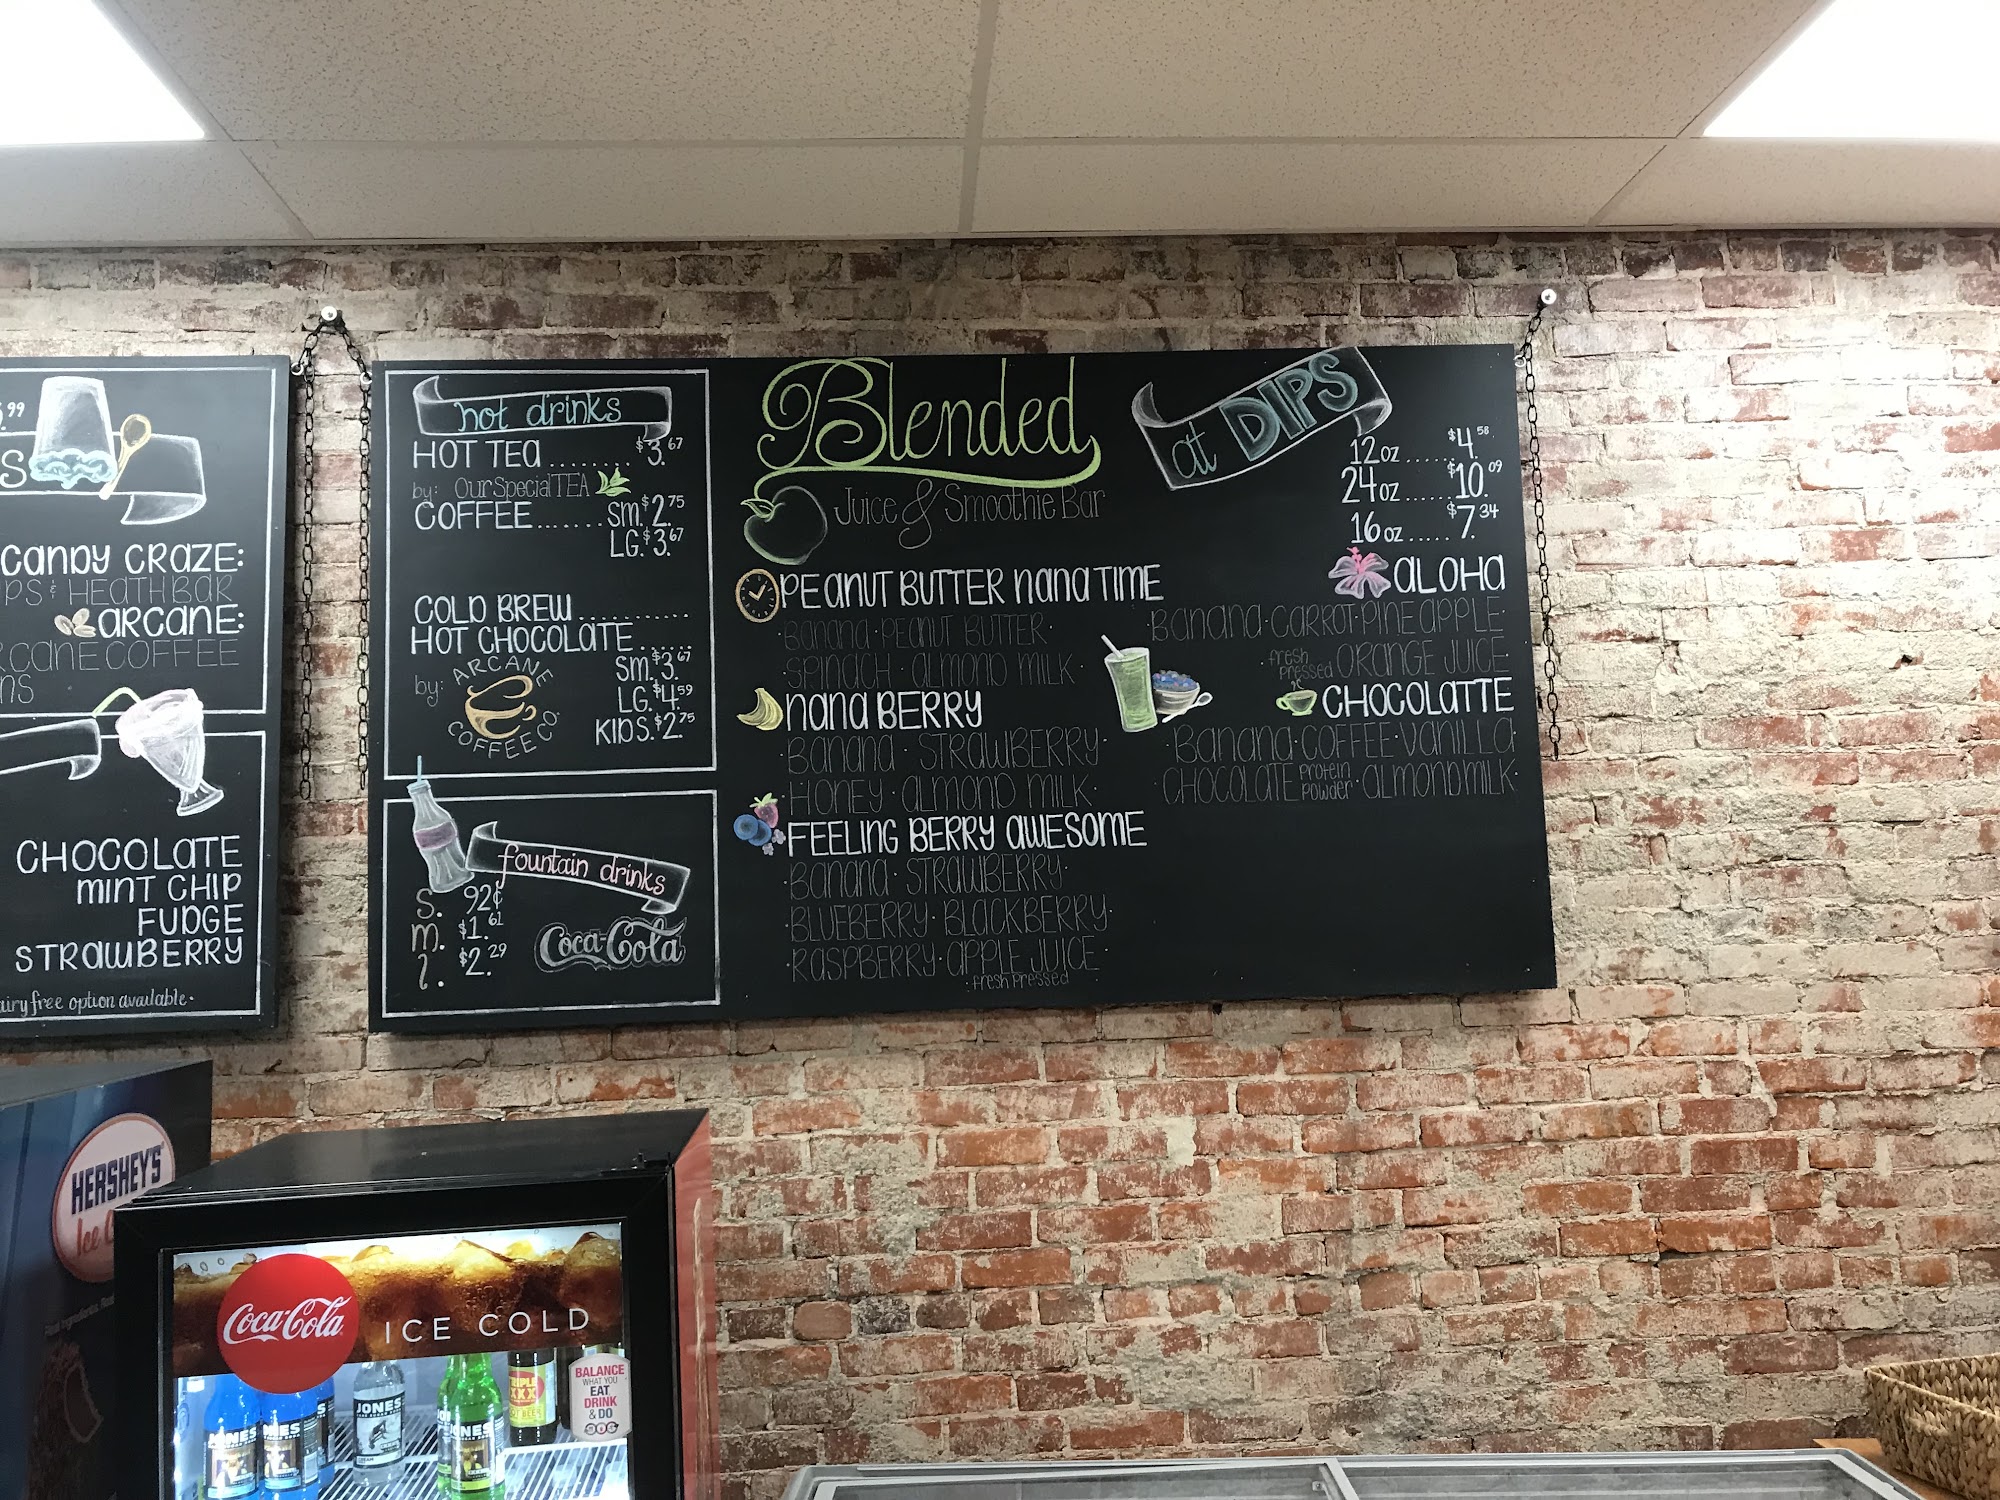 .99
S
CANDY CRAZE:
PS & HEATH BAR
ARCANE:
RCANE COFFEE
NS
CHOCOLATE
MINT CHIP
FUDGE
STRAWBERRY
airy free option available.
hot drinks
HOT TEA ........ $3.67
by: Our Special TEA
COFFEE....... SM. $2.75
LG. $3.67
COLD BREW ...........
HOT CHOCOLATE ......
by: ARCANE COFFEE CO.
SM. $3.67
LG. $4.59
KIDS. $2.75
fountain drinks
S. 92¢
M. $1.61
L. $2.29
Coca-Cola
Blended
Juice & Smoothie Bar
at DIPS
12 oz ...... $4.58
24 oz ...... $10.09
16 oz ... $7.34
PEANUT BUTTER NANA TIME
·BANANA·PEANUT BUTTER·
SPINACH·ALMOND MILK·
NANA BERRY
BANANA·STRAWBERRY·
·HONEY·ALMOND MILK·
FEELING BERRY AWESOME
·BANANA·STRAWBERRY·
BLUEBERRY·BLACKBERRY·
RASPBERRY·APPLE JUICE·
·fresh pressed
ALOHA
BANANA·CARROT·PINEAPPLE·
·fresh pressed ORANGE JUICE·
CHOCOLATTE
·BANANA·COFFEE·VANILLA·
CHOCOLATE protein powder·ALMOND MILK·
HERSHEY'S
Ice
Coca-Cola
ICE COLD
BALANCE
WHAT YOU
EAT
DRINK
& DO
JONES
JONES
JONES
JONES
XXX